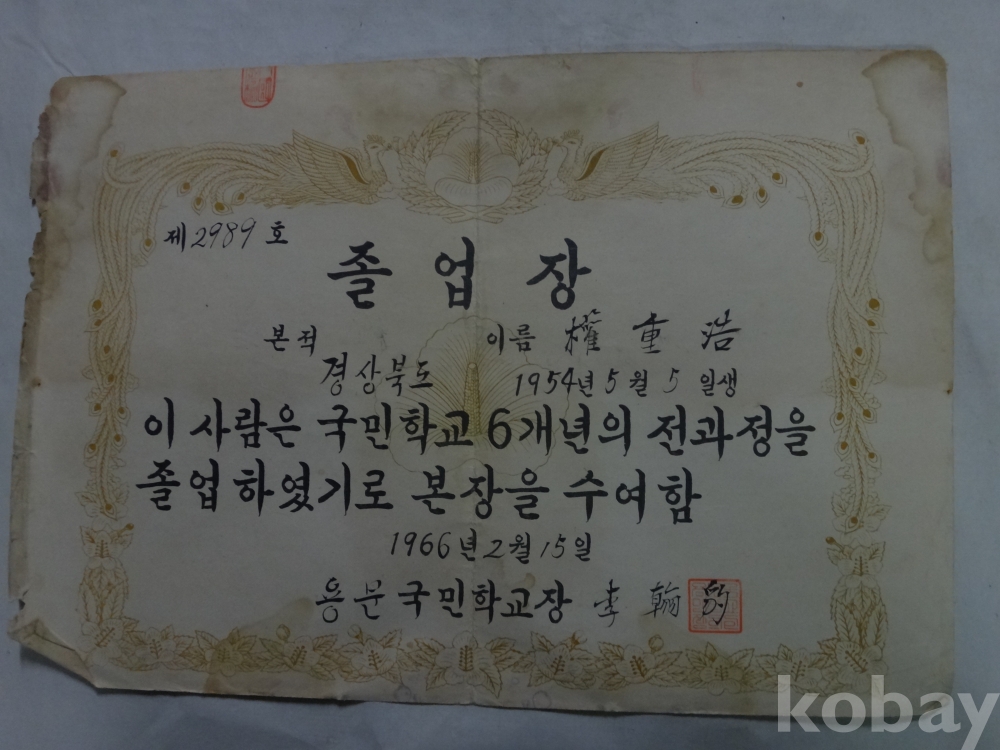 제2989호
졸업장
본적 이름 權重浩
경상북도 1954년5월5일생
이 사람은 국민학교 6개년의 전과정을
졸업하였기로 본장을 수여함
1966년2월15일
용문국민학교장 李翰
kobay